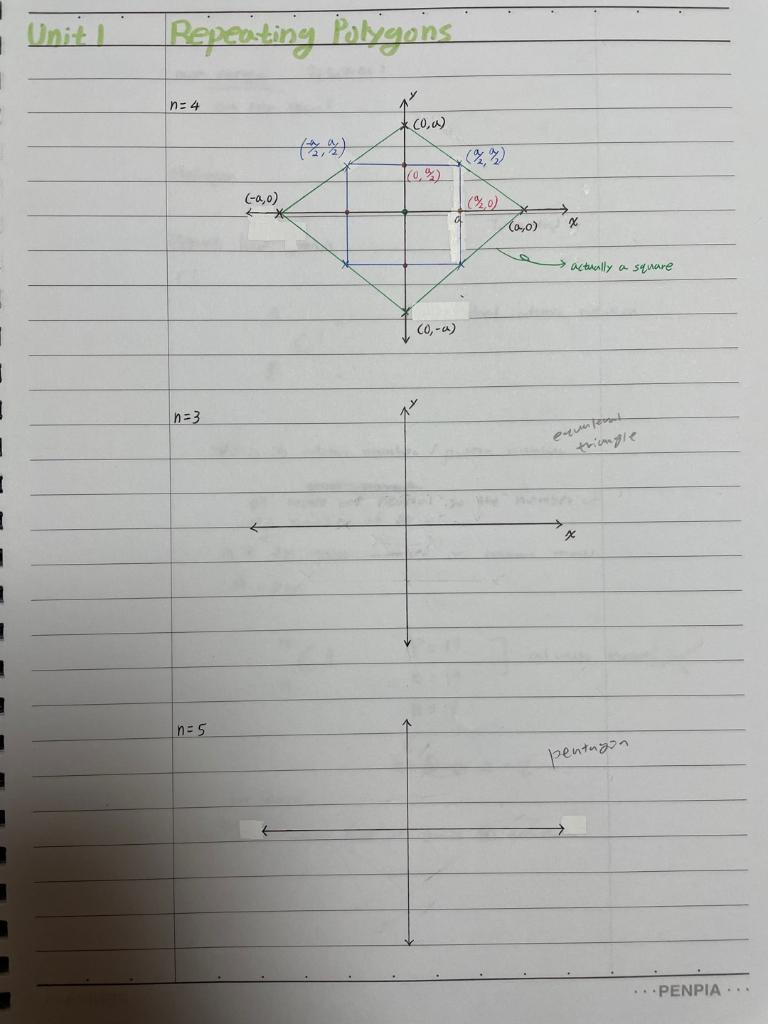 Unit 1 Repeating Polygons
n=4
y
(0,a)
(-a/2, a/2)
(a/2, a/2)
(0, a/2)
(-a,0)
(a/2, 0)
a
(a,0)
x
actually a square
(0,-a)
n=3
y
equilateral
triangle
x
n=5
pentagon
PENPIA